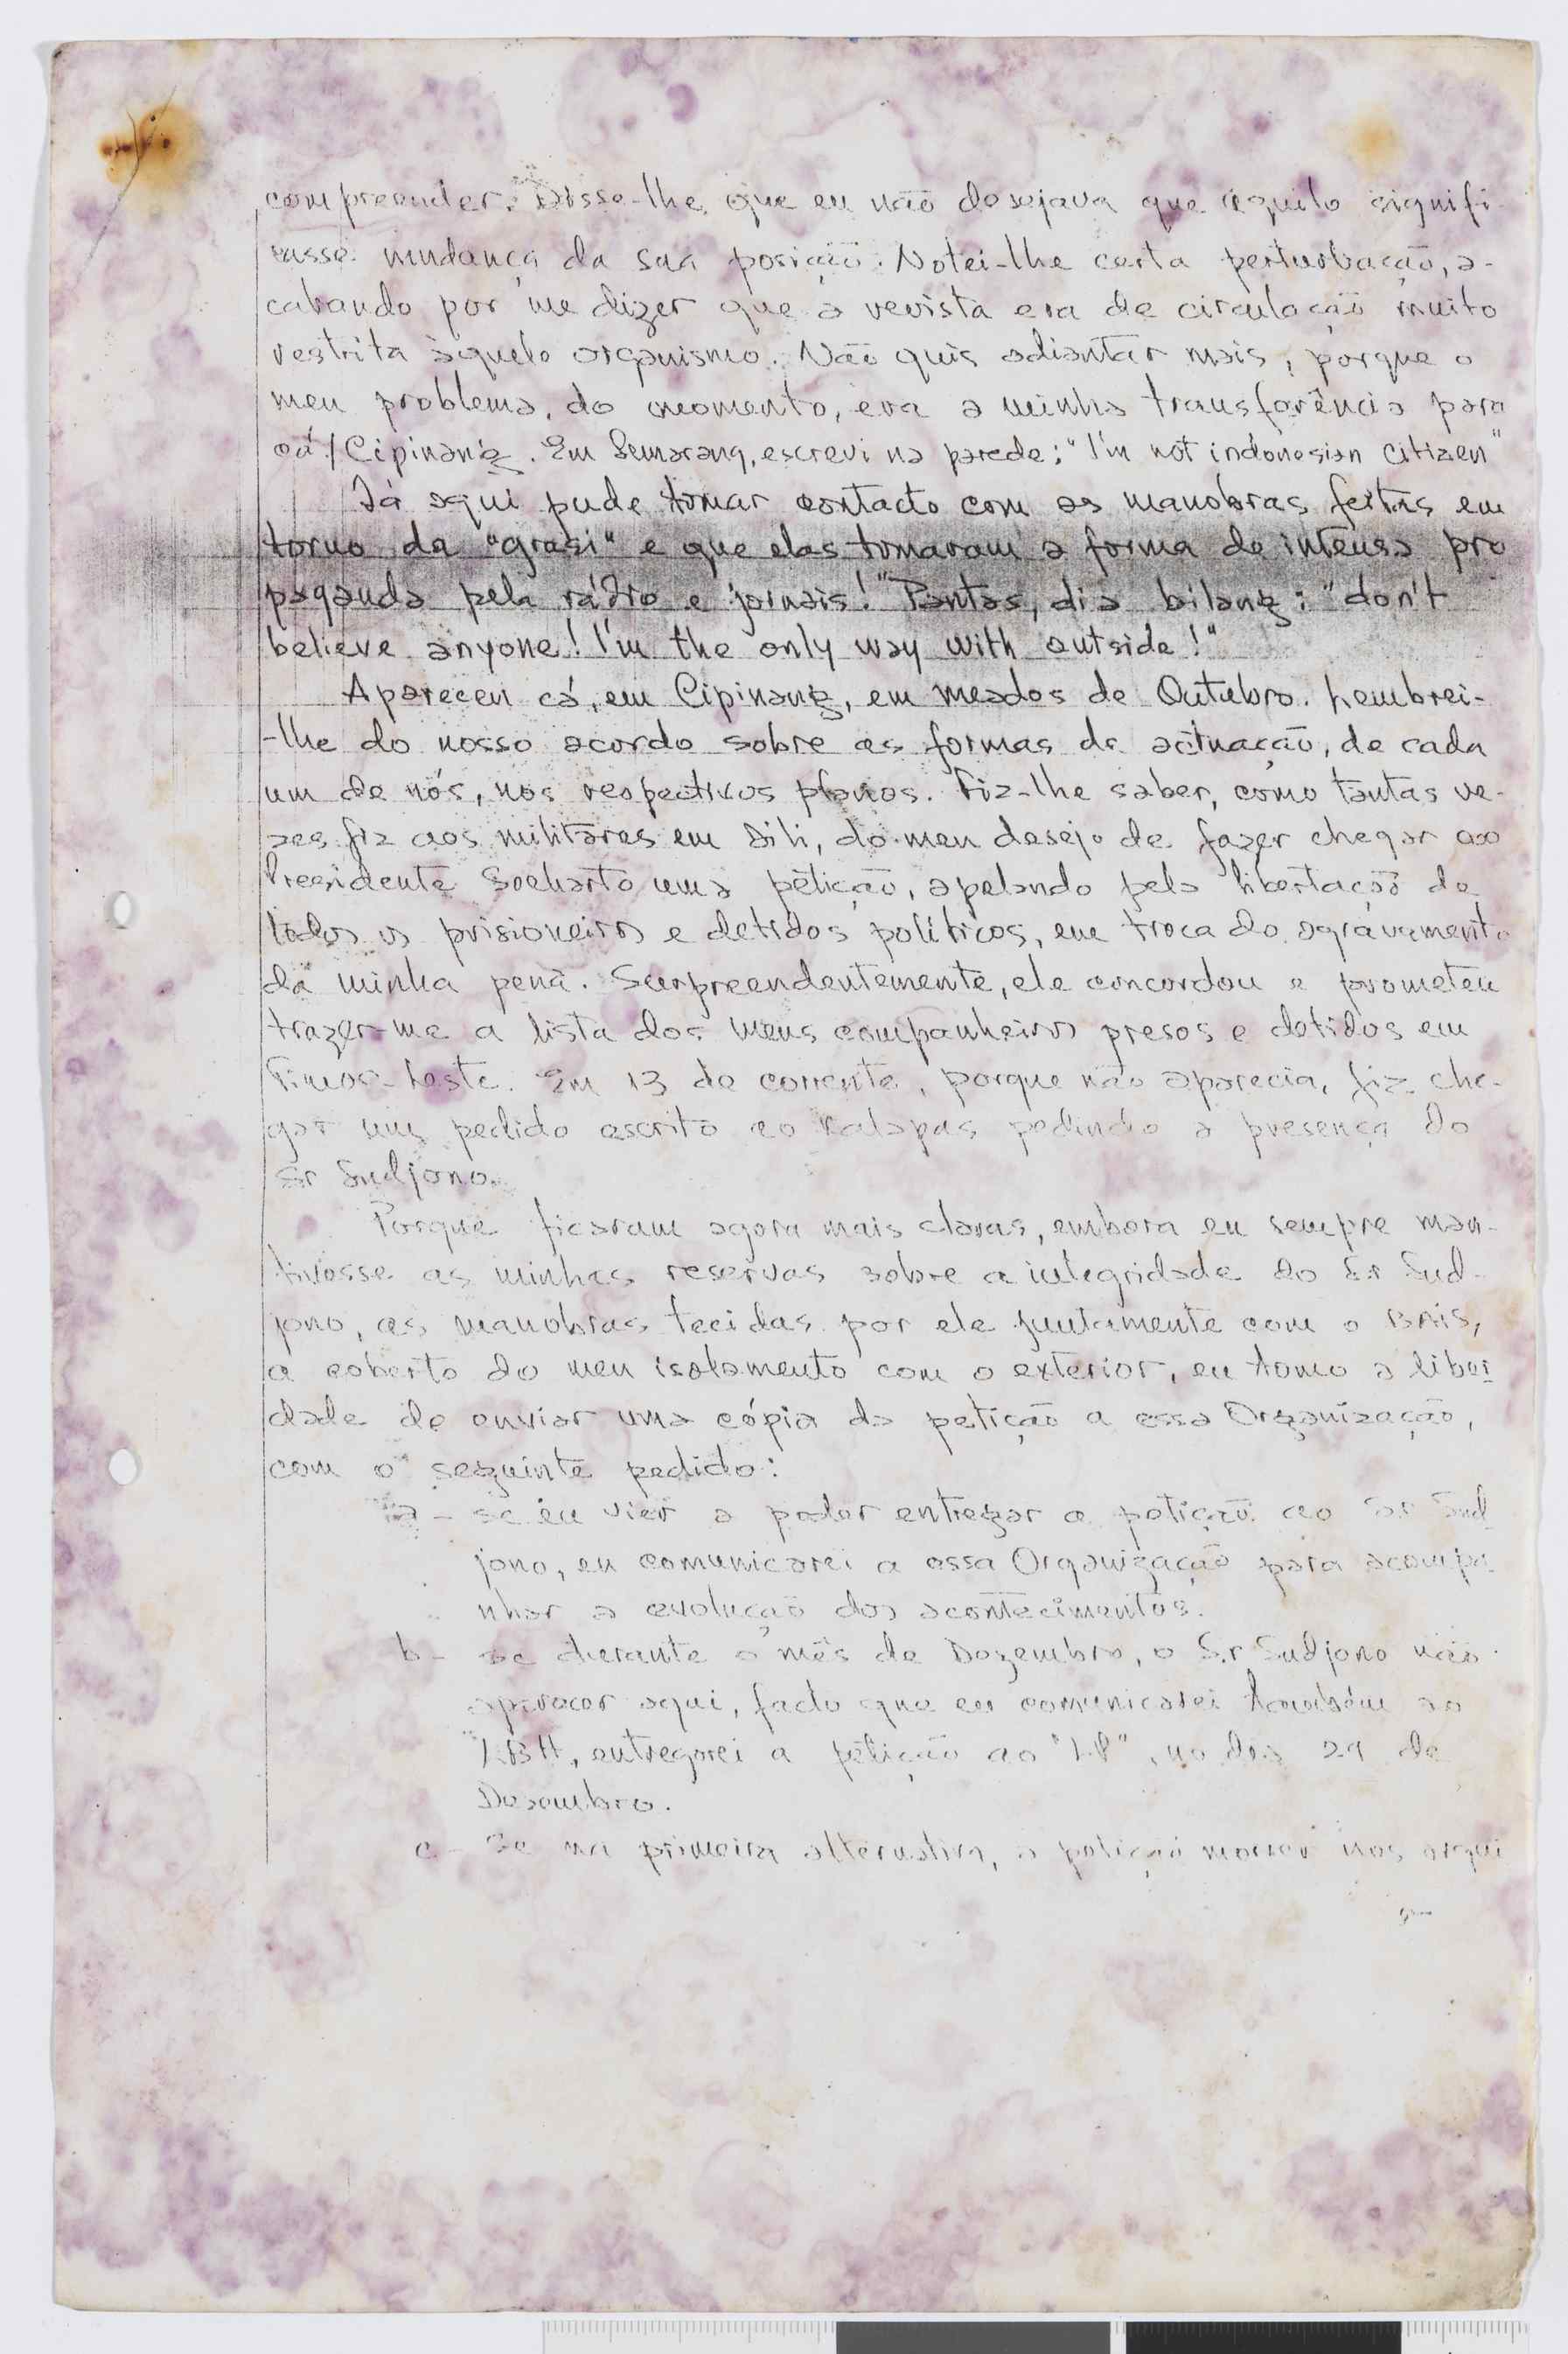 compreender. Disse-lhe que eu não desejava que aquilo signifi-
casse mudança da sua posição. Notei-lhe certa perturbação, a-
cabando por me dizer que a revista era de circulação muito
restrita àquele organismo. Não quis adiantar mais, porque o
meu problema, do momento, era a minha transferência para
cá/Cipinang. Em Semarang, escrevi na parede: "I'm not indonesian citizen"
Já aqui pude tomar contacto com as manobras feitas em
torno da "grasi" e que elas tomaram a forma de intensa pro
paganda pela rádio e jornais! "Pantas, dia bilang: "don't
believe anyone! I'm the only way with outside!"
Apareceu cá, em Cipinang, em meados de Outubro. Lembrei-
-lhe do nosso acordo sobre as formas de actuação, de cada
um de nós, nos respectivos planos. Fiz-lhe saber, como tantas ve-
zes fiz aos militares em Dili, do meu desejo de fazer chegar ao
Presidente Soeharto uma petição, apelando pela libertação de
todos os prisioneiros e detidos políticos, em troca do agravamento
da minha pena. Surpreendentemente, ele concordou e prometeu
trazer-me a lista dos meus companheiros presos e detidos em
Timor-Leste. Em 13 de corrente, porque não aparecia, fiz che-
gar um pedido escrito ao Kalapas pedindo a presença do
Sr Sudjono.
Porque ficaram agora mais claras, embora eu sempre man-
tivesse as minhas reservas sobre a integridade do Sr Sud-
jono, as manobras tecidas por ele juntamente com o BAIS,
a coberto do meu isolamento com o exterior, eu tomo a liber
dade de enviar uma cópia da petição a essa Organização,
com o seguinte pedido:
a - se eu vier a poder entregar a petição ao Sr Sud
jono, eu comunicarei a essa Organização para acompa
nhar a evolução dos acontecimentos.
b - se durante o mês de Dezembro, o Sr Sudjono não
aparecer aqui, facto que eu comunicarei também ao
LBH, entregarei a petição ao "LP", no dia de
Dezembro.
c - Se na primeira alternativa, a petição morrer nos arqui